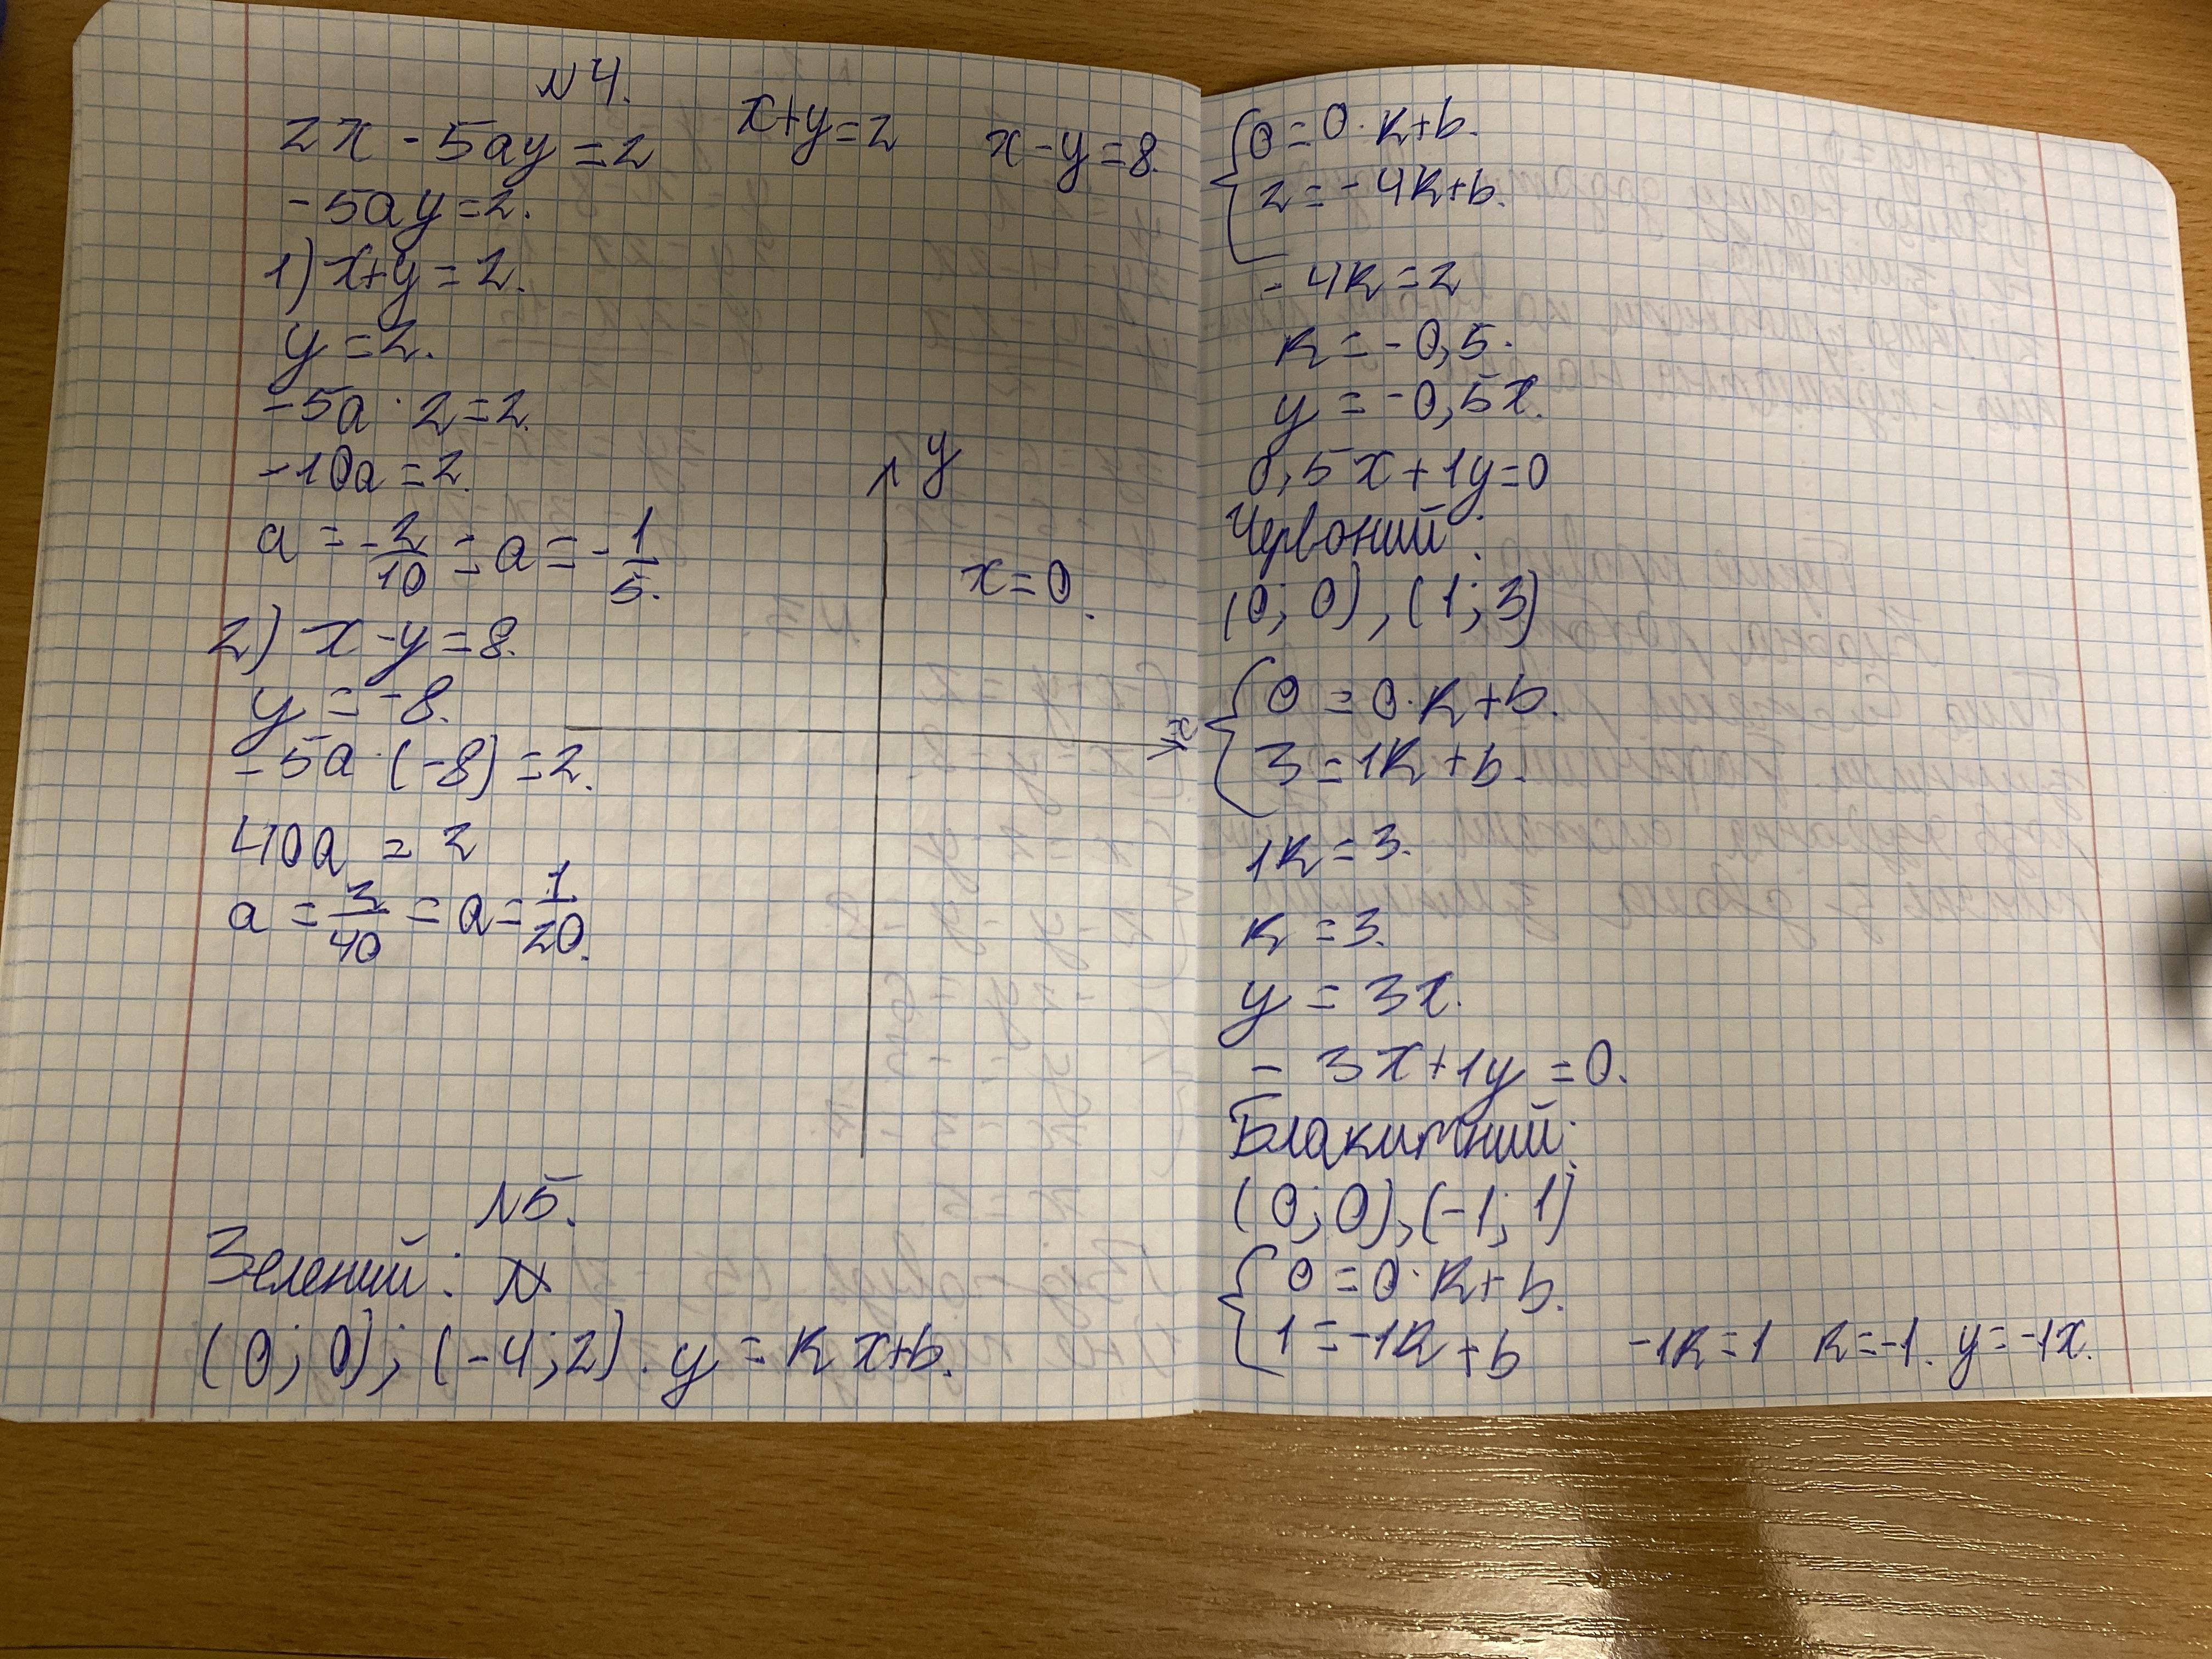 N4.
2x - 5ay = 2
x+y=2
x-y=8.
-5ay=2.
1) x+y=2.
y=2.
-5a · 2=2.
-10a=2.
a = -2/10 = a = -1/5.
2) x-y=8.
y = -8.
-5a · (-8) = 2.
40a = 2
a = 3/40 = a = 1/20.
y
x=0.
x
N5.
Зелений: N
(0; 0); (-4; 2). y = kx+b.
0=0·k+b.
2=-4k+b.
-4k=2
k=-0,5.
y=-0,5x.
0,5x+1y=0
Червоний:
(0; 0), (1; 3)
0=0·k+b.
3=1k+b.
1k=3.
k=3.
y=3x.
-3x+1y=0.
Блакитний:
(0; 0), (-1; 1)
0=0·k+b.
1=-1k+b -1k=1 k=-1. y=-1x.